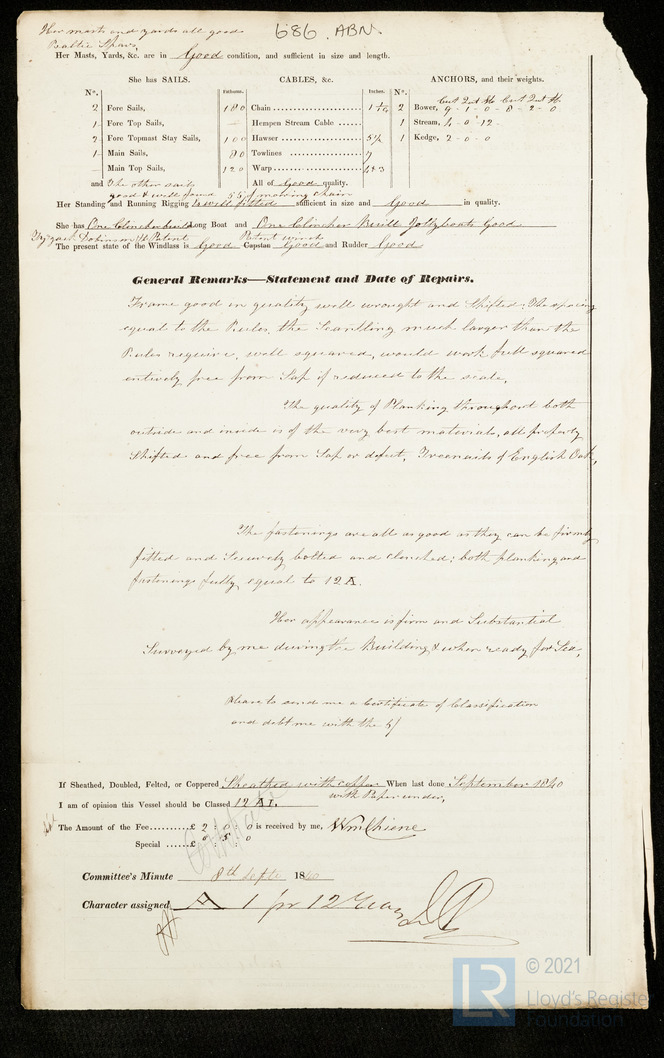 Her masts and yards all good
686. ABN.
Baltic Spars,
Her Masts, Yards, &c. are in Good condition, and sufficient in size and length.
She has SAILS.
CABLES, &c.
ANCHORS, and their weights.
Nº. Fathoms. Inches. Nº. Cwt Qrt lb Cwt Qrt lb
2 Fore Sails, 180 Chain 1 2 Bower, 9 - 1 - 0 - 8 - 2 - 0
1 Fore Top Sails, Hempen Stream Cable 1 Stream, 4 - 0 - 12 -
2 Fore Topmast Stay Sails, 100 Hawser 5½ 1 Kedge, 2 - 0 - 0
1 Main Sails, 80 Towlines 7
Main Top Sails, 120 Warp 4 & 3
and the other sails All of Good quality.
good & well found 55 f mooring chain
Her Standing and Running Rigging is well fitted sufficient in size and Good in quality.
She has One Clincher built Long Boat and One Clincher Built Jollyboats Good
Patent winch
The present state of the Windlass is Good Capstan Good and Rudder Good
General Remarks—Statement and Date of Repairs.
Frame good in quality well wrought and Shifted. The spacing
equal to the Rules, the Scantling much larger than the
Rules require, well squared, would work full squared
entirely free from Sap if reduced to the scale.
The quality of Planking throughout both
outside and inside is of the very best materials, all properly
Shifted and free from Sap or defect, Treenails of English Oak,
The fastenings are all as good as they can be firmly
fitted and Securely bolted and clenched; both planking and
fastenings fully equal to 12 A.
Her appearance is firm and Substantial
Surveyed by me during the Building & when ready for Sea,
Please to send me a Certificate of Classification
and debt me with the 5/
If Sheathed, Doubled, Felted, or Coppered Sheathed with copper When last done September 1840
with Paper under,
I am of opinion this Vessel should be Classed 12 A1.
The Amount of the Fee £ 2 : 0 : 0 is received by me, Wm Chiene
Special £ 5 : 0
Committee's Minute 8th Septr 1840
Character assigned A 1 for 12 Years
LR
© 2021
Lloyd's Registe
Foundation